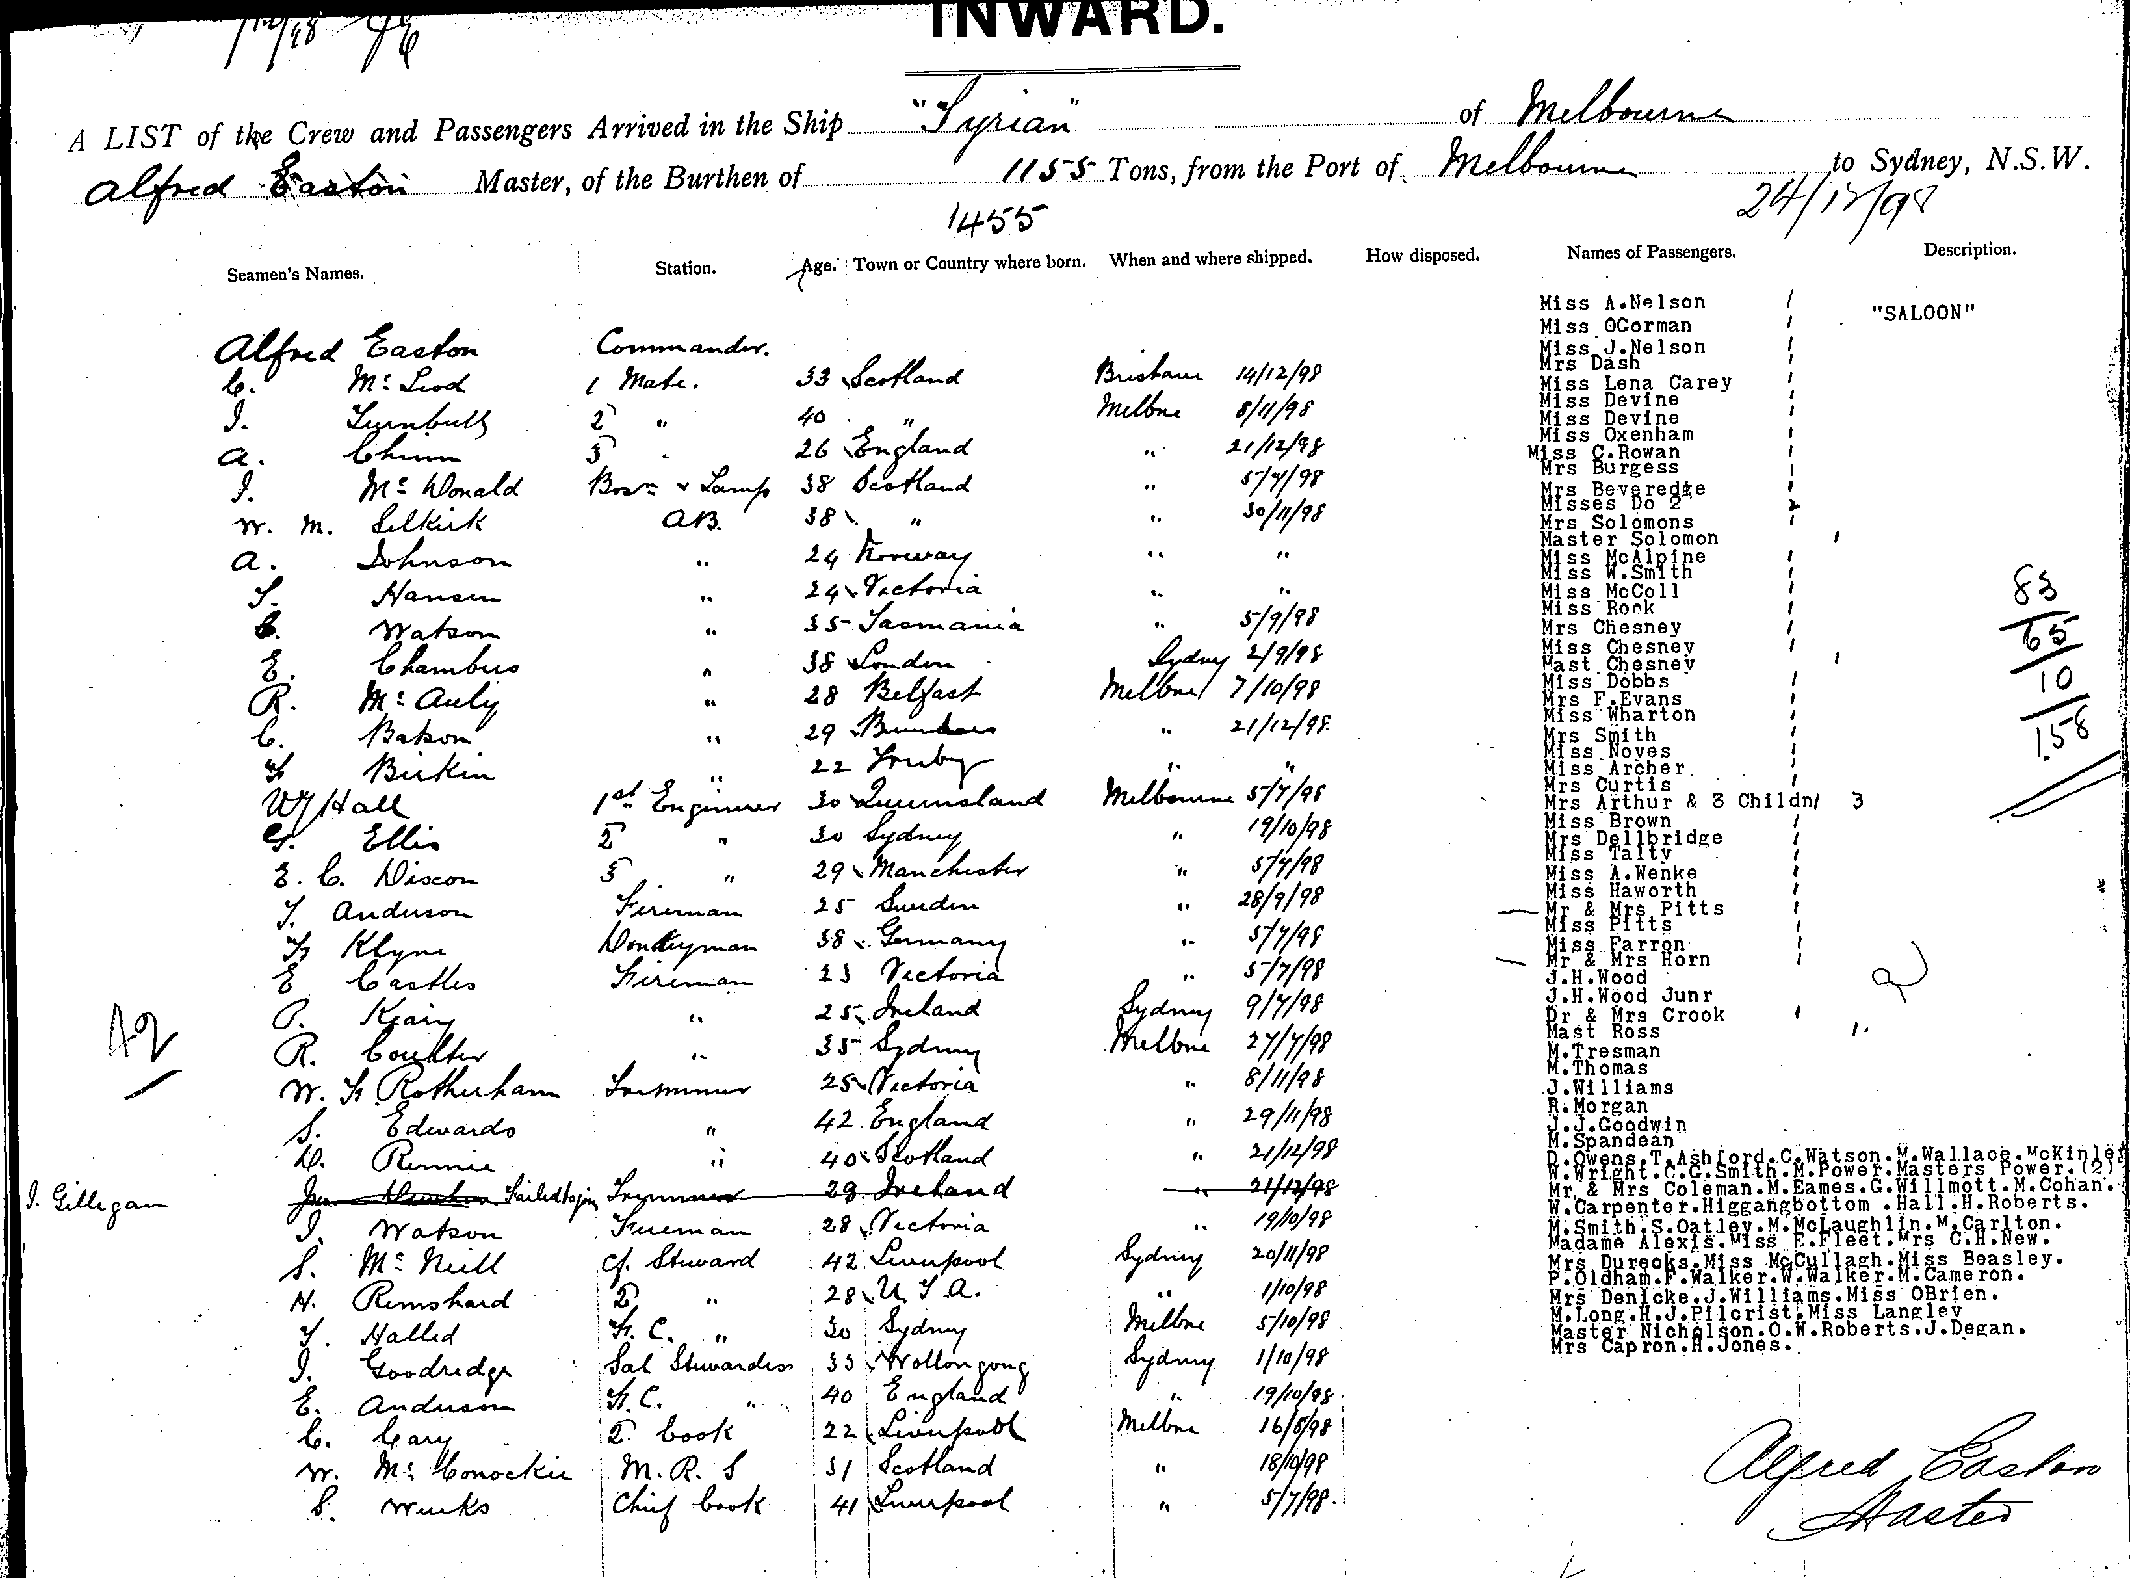 INWARD.
A LIST of the Crew and Passengers Arrived in the Ship "Syrian" of Melbourne
Alfred Easton Master, of the Burthen of 1155 Tons, from the Port of Melbourne to Sydney, N.S.W.
1455
24/12/98
Seamen's Names. Station. Age. Town or Country where born. When and where shipped. How disposed. Names of Passengers. Description.
Alfred Easton Commander.
C. McLeod 1 Mate. 33 Scotland Brisbane 14/12/98
J. Turnbull 2 " 40 " Melbne 8/11/98
A. Chinn 3 " 26 England " 21/12/98
J. McDonald Bosn & Lamps 38 Scotland " 5/7/98
W. M. Selkirk AB. 38 " " 30/11/98
A. Johnson " 24 Norway " "
S. Hansen " 24 Victoria " "
C. Watson " 35 Tasmania " 5/9/98
E. Chambers " 38 London Sydney 2/9/98
R. McAuly " 28 Belfast Melbne 7/10/98
C. Batson " 29 " 21/12/98
Birkin " 22 " "
W J Hall 1st Engineer 30 Queensland Melbourne 5/7/98
G. Ellis 2 " 30 Sydney " 19/10/98
E. C. Discon 3 " 29 Manchester " 5/7/98
T. Anderson Fireman 25 Sweden " 28/9/98
F. Klyne Donkeyman 38 Germany " 5/7/98
E Castles Fireman 23 Victoria " 5/7/98
P. " 25 Ireland Sydney 9/7/98
R. Coulter " 35 Sydney Melbne 27/7/98
W. F. Rotherham Trimmer 25 Victoria " 8/11/98
S. Edwards " 42 England " 29/11/98
D. Rennie " 40 Scotland " 21/12/98
J. Gilligan Failed to join Trimmer 29 Ireland " 21/12/98
J. Watson Fireman 28 Victoria " 19/10/98
S. McNeill Cf. Steward 42 Liverpool Sydney 20/11/98
H. Rimshard 2 " 28 U S A. " 1/10/98
T. Halled F. C. " 30 Sydney Melbne 5/10/98
J. Goodredge Sal Stewardess 33 Wollongong Sydney 1/10/98
E. Anderson F. C. " 40 England " 19/10/98
C. Cary 2 Cook 22 Liverpool Melbne 16/8/98
W. McConockie M. R. S 31 Scotland " 18/10/98
S. Weeks Chief Cook 41 Liverpool " 5/7/98
42
Miss A.Nelson 1 "SALOON"
Miss OCorman 1
Miss J.Nelson 1
Mrs Dash 1
Miss Lena Carey 1
Miss Devine 1
Miss Devine 1
Miss Oxenham 1
Miss C.Rowan 1
Mrs Burgess 1
Mrs Beveredge 1
Misses Do 2 2
Mrs Solomons 1
Master Solomon 1
Miss McAlpine 1
Miss W.Smith 1
Miss McColl 1
Miss Rork 1
Mrs Chesney 1
Miss Chesney 1
Mast Chesney 1
Miss Dobbs 1
Mrs F.Evans 1
Miss Wharton 1
Mrs Smith 1
Miss Noyes 1
Miss Archer. 1
Mrs Curtis 1
Mrs Arthur & 3 Childn/ 3
Miss Brown 1
Mrs Dellbridge 1
Miss Talty 1
Miss A.Wenke 1
Miss Haworth 1
Mr & Mrs Pitts 1
Miss Pitts 1
Miss Farron 1
Mr & Mrs Horn 1
J.H.Wood
J.H.Wood Junr
Dr & Mrs Crook 1
Mast Ross 1.
M.Tresman
M.Thomas
J.Williams
R.Morgan
J.J.Goodwin
M.Spandean
D.Owens.T.Ashford.C.Watson.M.Wallace.McKinley
W.Wright.C.G.Smith.M.Power.Masters Power.(2)
Mr & Mrs Coleman.M.Eames.G.Willmott.M.Cohan.
W.Carpenter.Higgangbottom .Hall.H.Roberts.
M.Smith.S.Oatley.M.McLaughlin.M.Carlton.
Madame Alexis.Miss E.Fleet.Mrs C.H.New.
Mrs Durecks.Miss McCullagh.Miss Beasley.
P.Oldham.F.Walker.W.Walker.M.Cameron.
Mrs Denicke.J.Williams.Miss OBrien.
M.Long.H.J.Pilcrist.Miss Langley
Master Nicholson.O.W.Roberts.J.Degan.
Mrs Capron.H.Jones.
83
65
10
158
Alfred Easton
Master